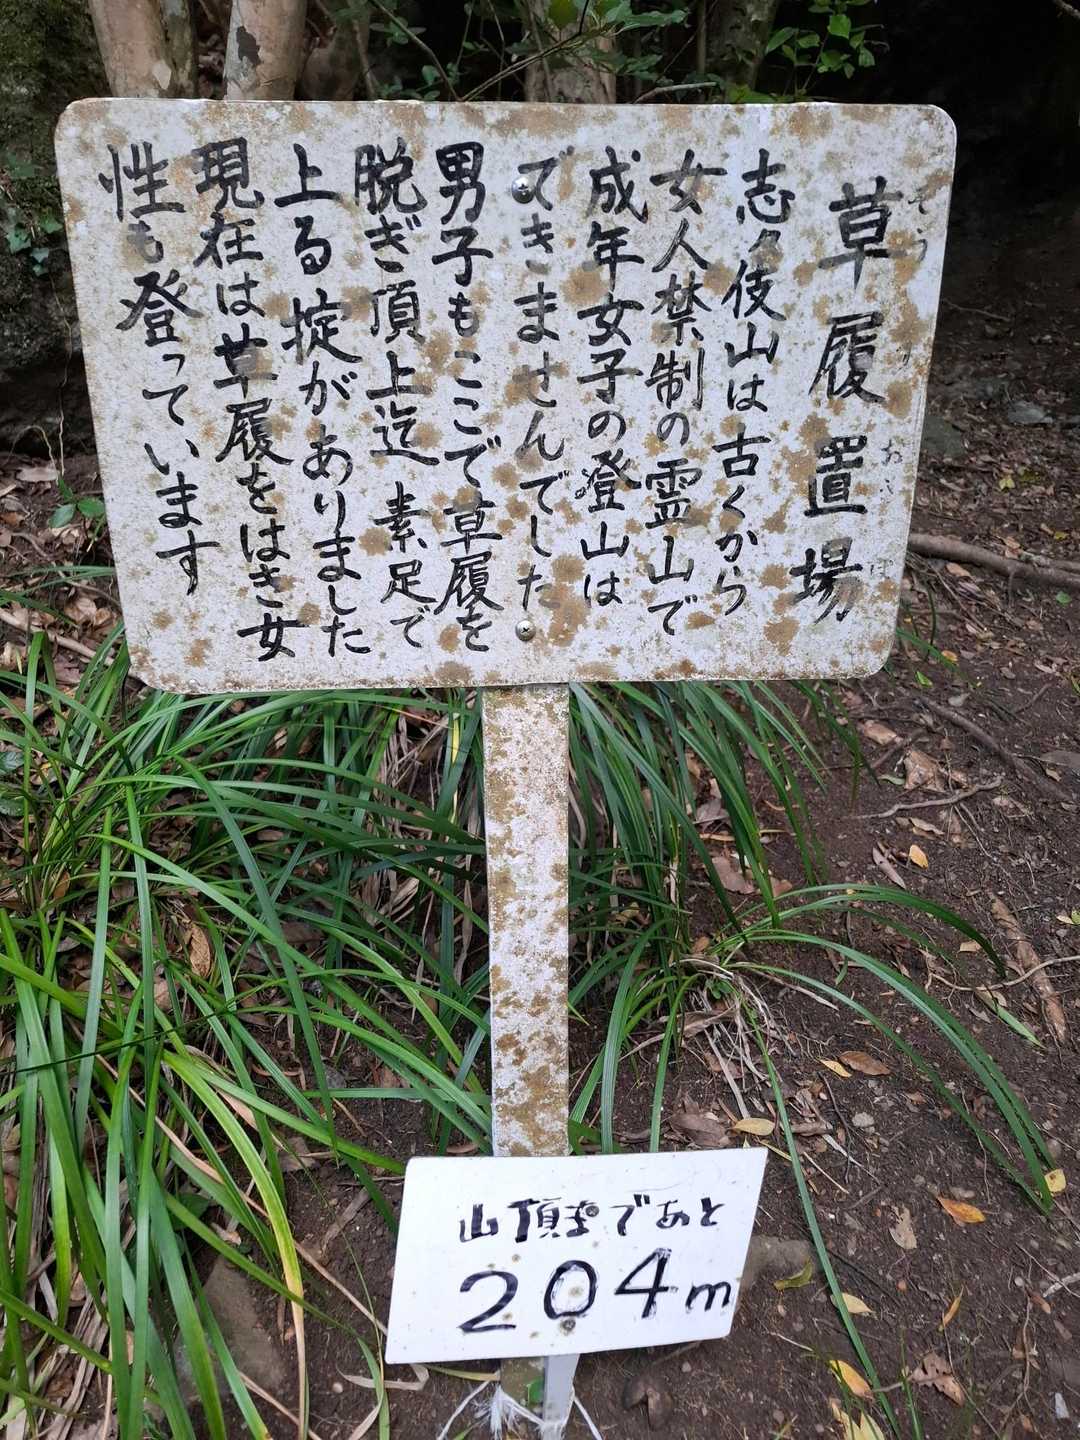 草履置場
ぞうり おきば
志々伎山は古くから
女人禁制の霊山で
成年女子の登山は
できませんでした
男子もここで草履を
脱ぎ頂上迄素足で
上る掟がありました
現在は草履をはき女
性も登っています
山頂まであと
204m